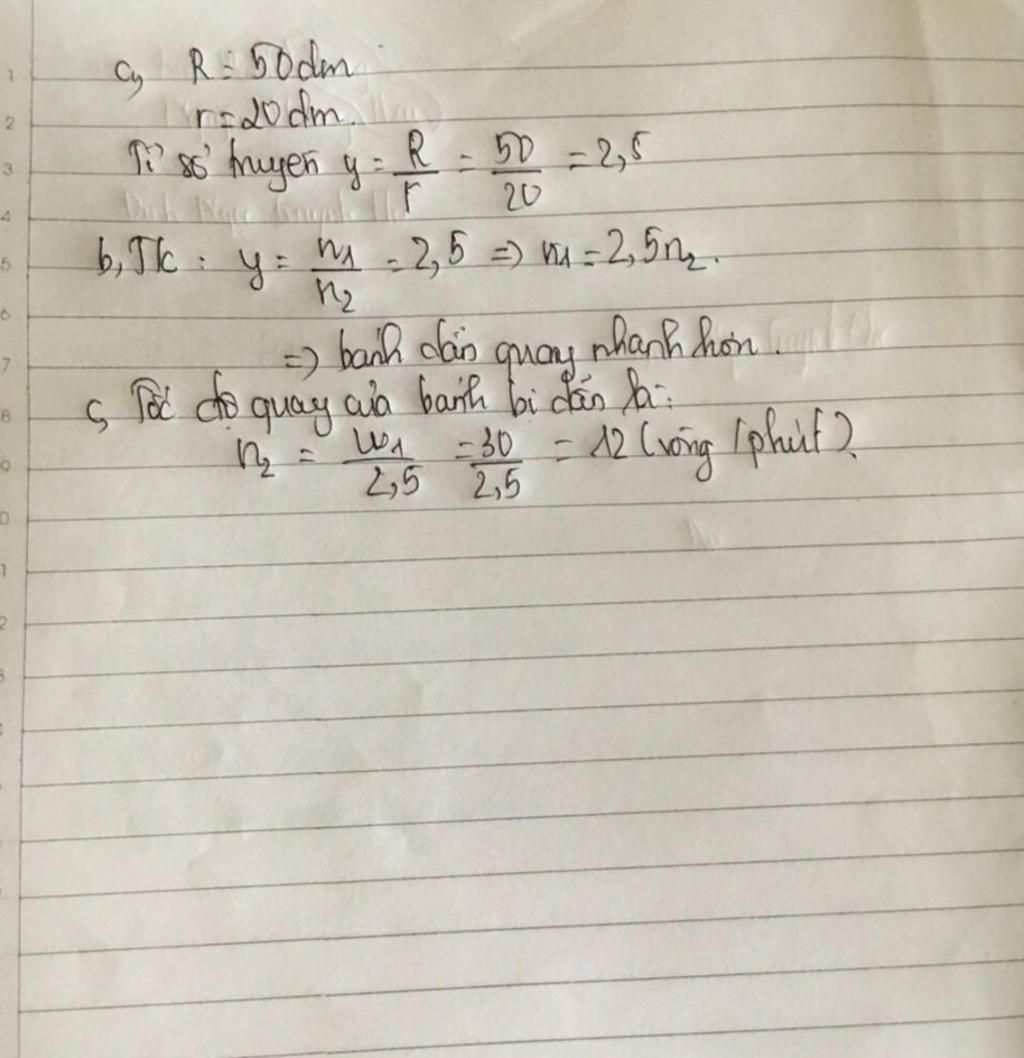 a, R = 50dm
r = 20 dm.
Tỉ số truyền y = R/r = 50/20 = 2,5
b, Tk : y = n1/n2 = 2,5 => n1 = 2,5n2.
=> bánh dẫn quay nhanh hơn.
c, Tốc độ quay của bánh bị dẫn là:
n2 = w1/2,5 = 30/2,5 = 12 (vòng/phút).